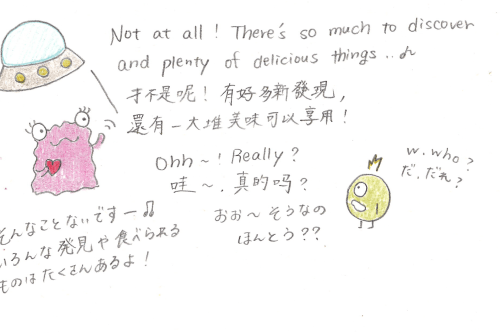 Not at all! There's so much to discover
and plenty of delicious things...♪
才不是呢！有好多新發現，
還有一大堆美味可以享用！
Ohh~! Really?
哇～．真的吗？
おお～そうなの
ほんとう？？
w.who?
だ．だれ？
そんなことないですー♫
いろんな発見や食べられる
ものはたくさんあるよ！